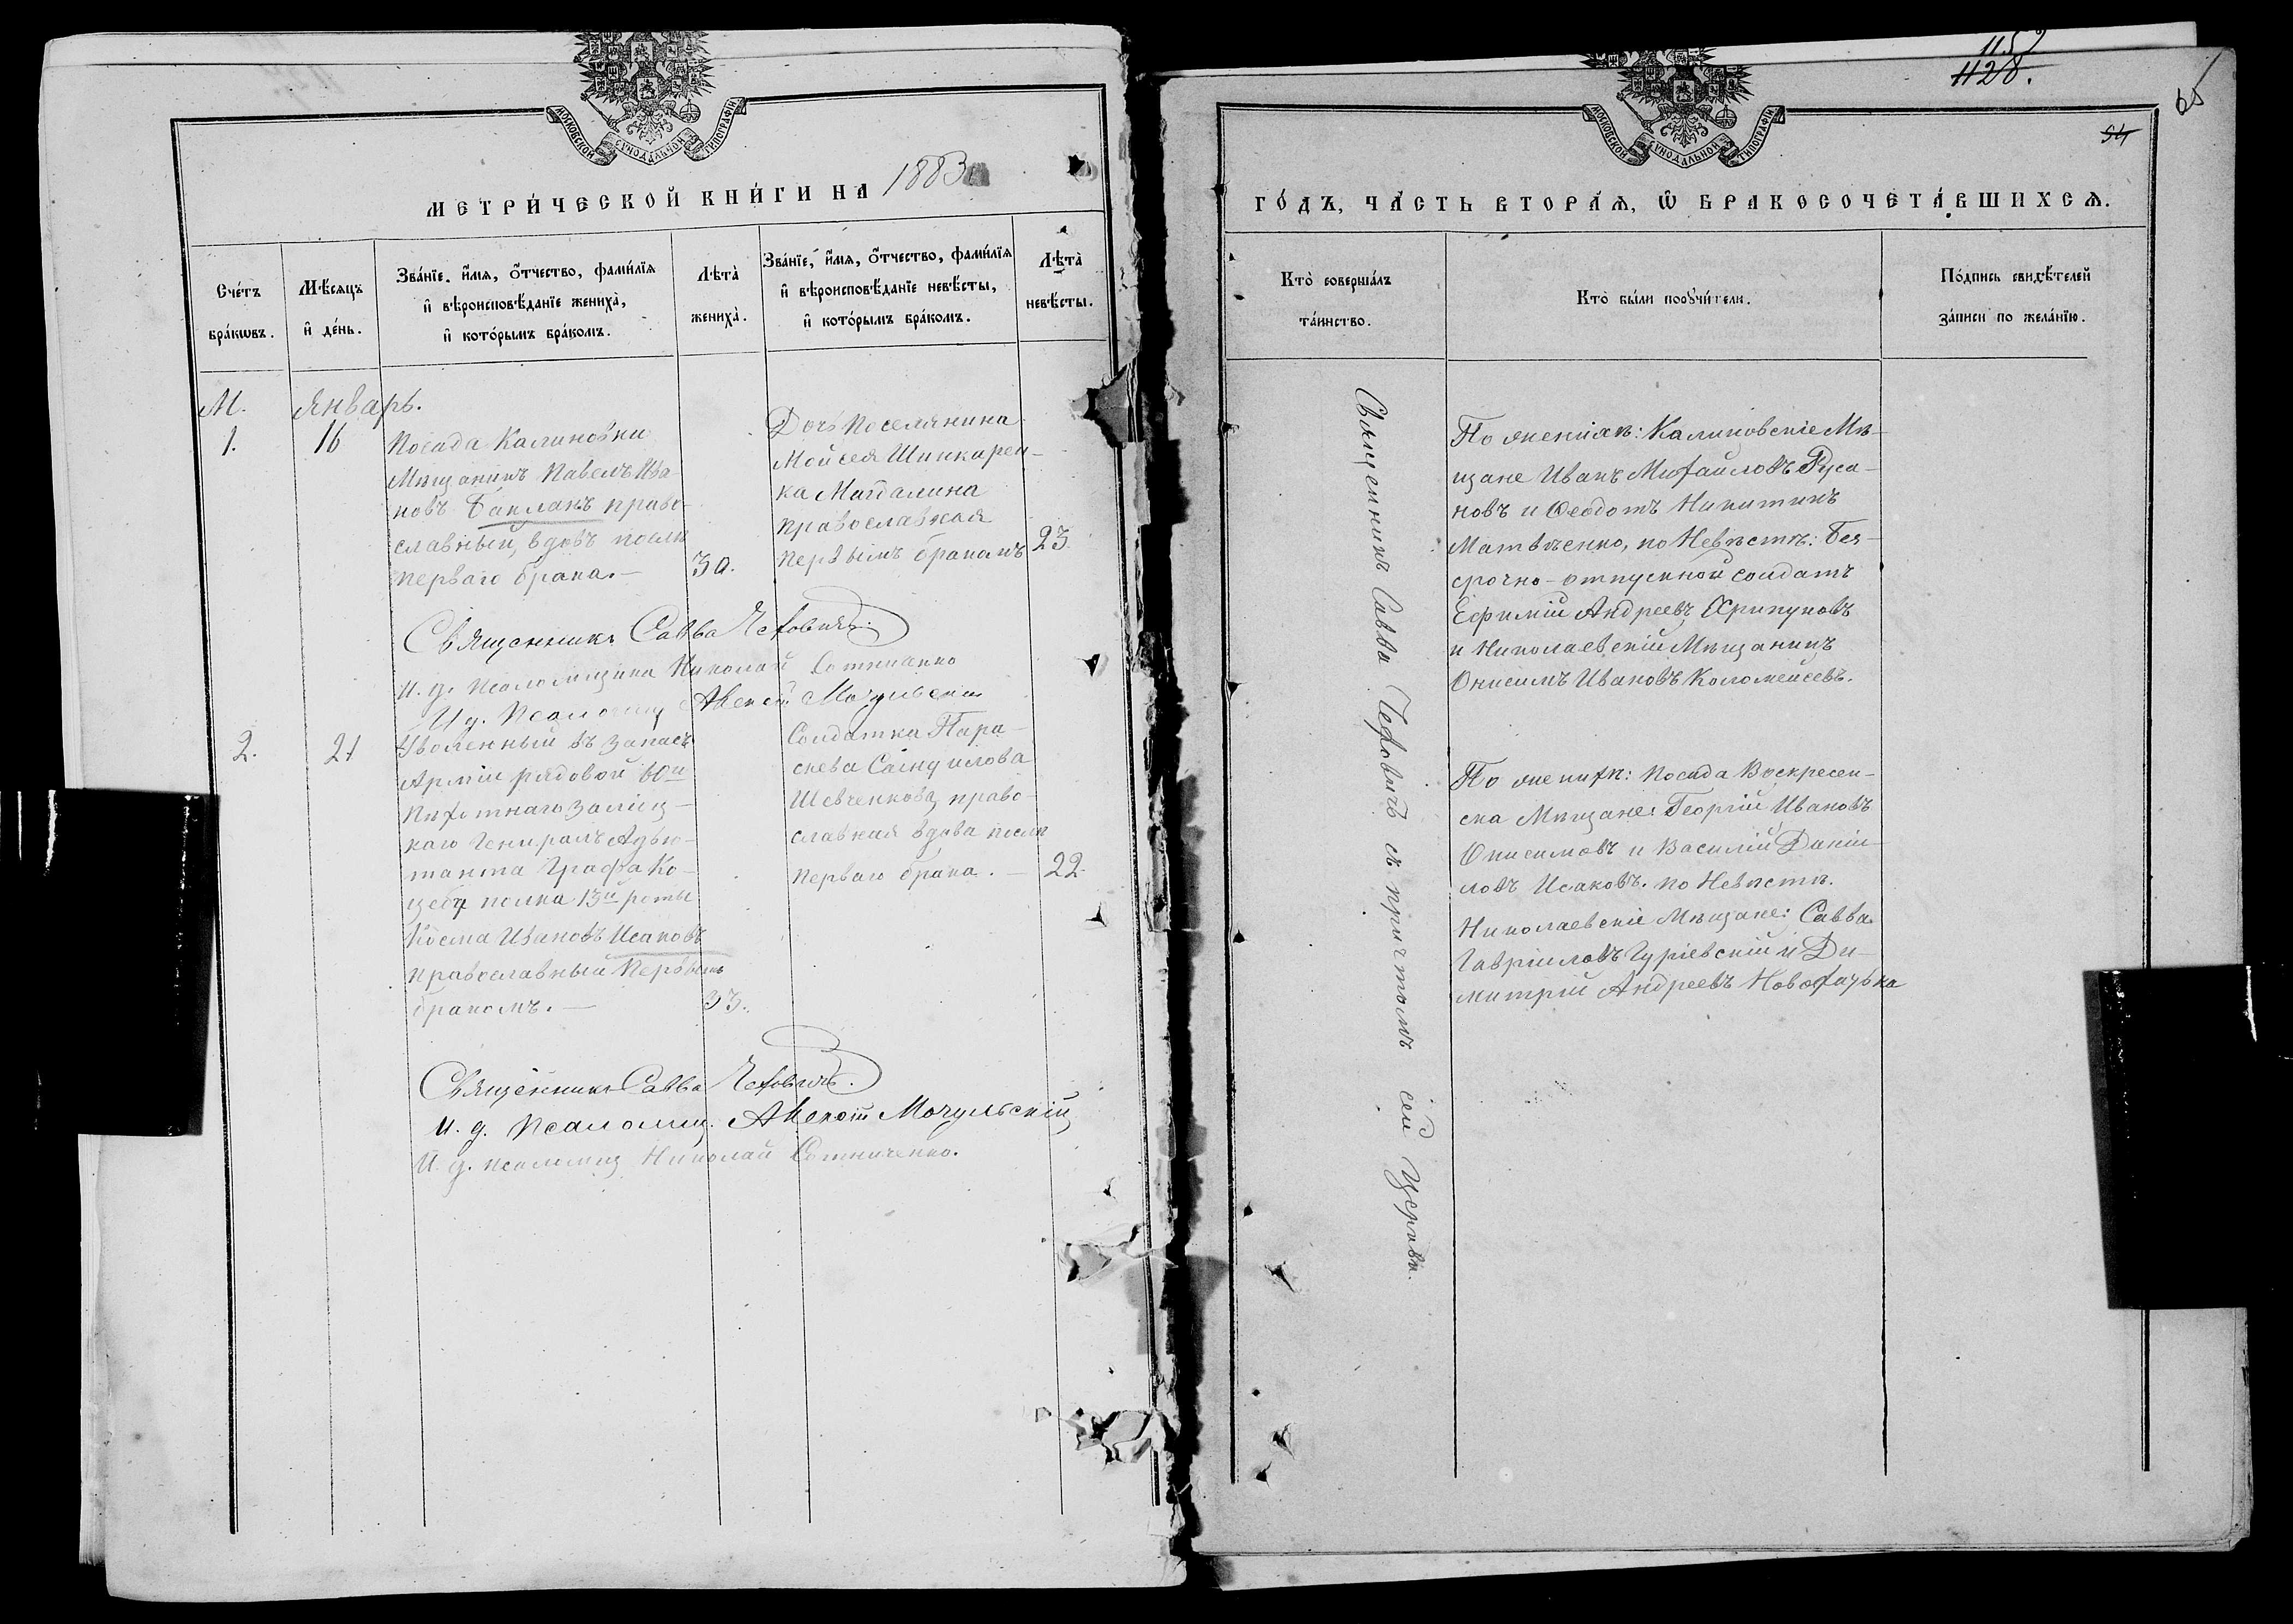 МОСКОВСКОЙ СѴНОДАЛЬНОЙ ТИПОГРАФІИ
МЕТРИ́ЧЕСКОЙ КНИ́ГИ НА 1883
Сче́тъ бра́кѡвъ.
Мѣ́сяцъ и҆ де́нь.
Зва́нїе, и҆́мя, ѻ҆́тчество, фами́лїя
и҆ вѣроисповѣ́данїе жениха̀,
и҆ кото́рымъ бра́комъ.
Лѣта̀ жениха̀.
Зва́нїе, и҆́мя, ѻ҆́тчество, фами́лїя
и҆ вѣроисповѣ́данїе невѣ́сты,
и҆ кото́рымъ бра́комъ.
Лѣта̀ невѣ́сты.
М. Январь.
1.
16
Посада Калиновки
Мѣщанинъ Павелъ Ива
новъ Бакланъ право-
славный, вдовъ послѣ
перваго брака.—
30.
Дочь Поселянина
Мойсея Шинкарен-
ка Магдалина
православная
первымъ бракомъ
23.
Священникъ Савва Чеховичъ.
И. д. Псаломщика Николай Сотниченко
И д. Псаломщ Алексѣй Мочульскій
2.
21
Уволенный въ запасъ
Арміи рядовой 60й
Пѣхотнаго Замосц-
каго Генералъ Адъю-
танта Графа Ко-
цебу полка 13й роты
Косма Ивановъ Исаковъ
православный первымъ
бракомъ.—
33.
Солдатка Пара-
скева Самуилова
Шевченкова, право-
славная вдова послѣ
перваго брака.—
22.
Священникъ Савва Чеховичъ.
И. д. Псаломщ. Алексѣй Мочульскій
И. д. псаломщ Николай Сотниченко.
1159
1128.
65
54
МОСКОВСКОЙ СѴНОДАЛЬНОЙ ТИПОГРАФІИ
ГО́ДЪ, ЧА́СТЬ ВТОРА́Я, Ѡ҆ БРАКОСОЧЕТА́ВШИХСЯ.
Кто̀ соверша́лъ
та́инство.
Кто̀ бы́ли порꙋчи́тели.
По́дпись свидѣ́телей
за́писи по жела́нїю.
Священникъ Савва Чеховичъ съ причтомъ сей Церкви.
По женихѣ: Калиновскіе Мѣ-
щане Иванъ Михайловъ Руса-
новъ и Ѳеодотъ Никитинъ
Матвѣенко, по Невѣстѣ: Без-
срочно-отпускной солдатъ
Ефимій Андреевъ Хрипуновъ
и Николаевскій Мѣщанинъ
Онисимъ Ивановъ Коломейсевъ.
По женихѣ: Посада Воскресен-
ска Мѣщане: Георгій Ивановъ
Онисимовъ и Василій Даніи-
ловъ Исаковъ. по Невѣстѣ.
Николаевскіе Мѣщане: Савва
Гавріиловъ Гуріевскій и Ди-
митрій Андреевъ Новохатька